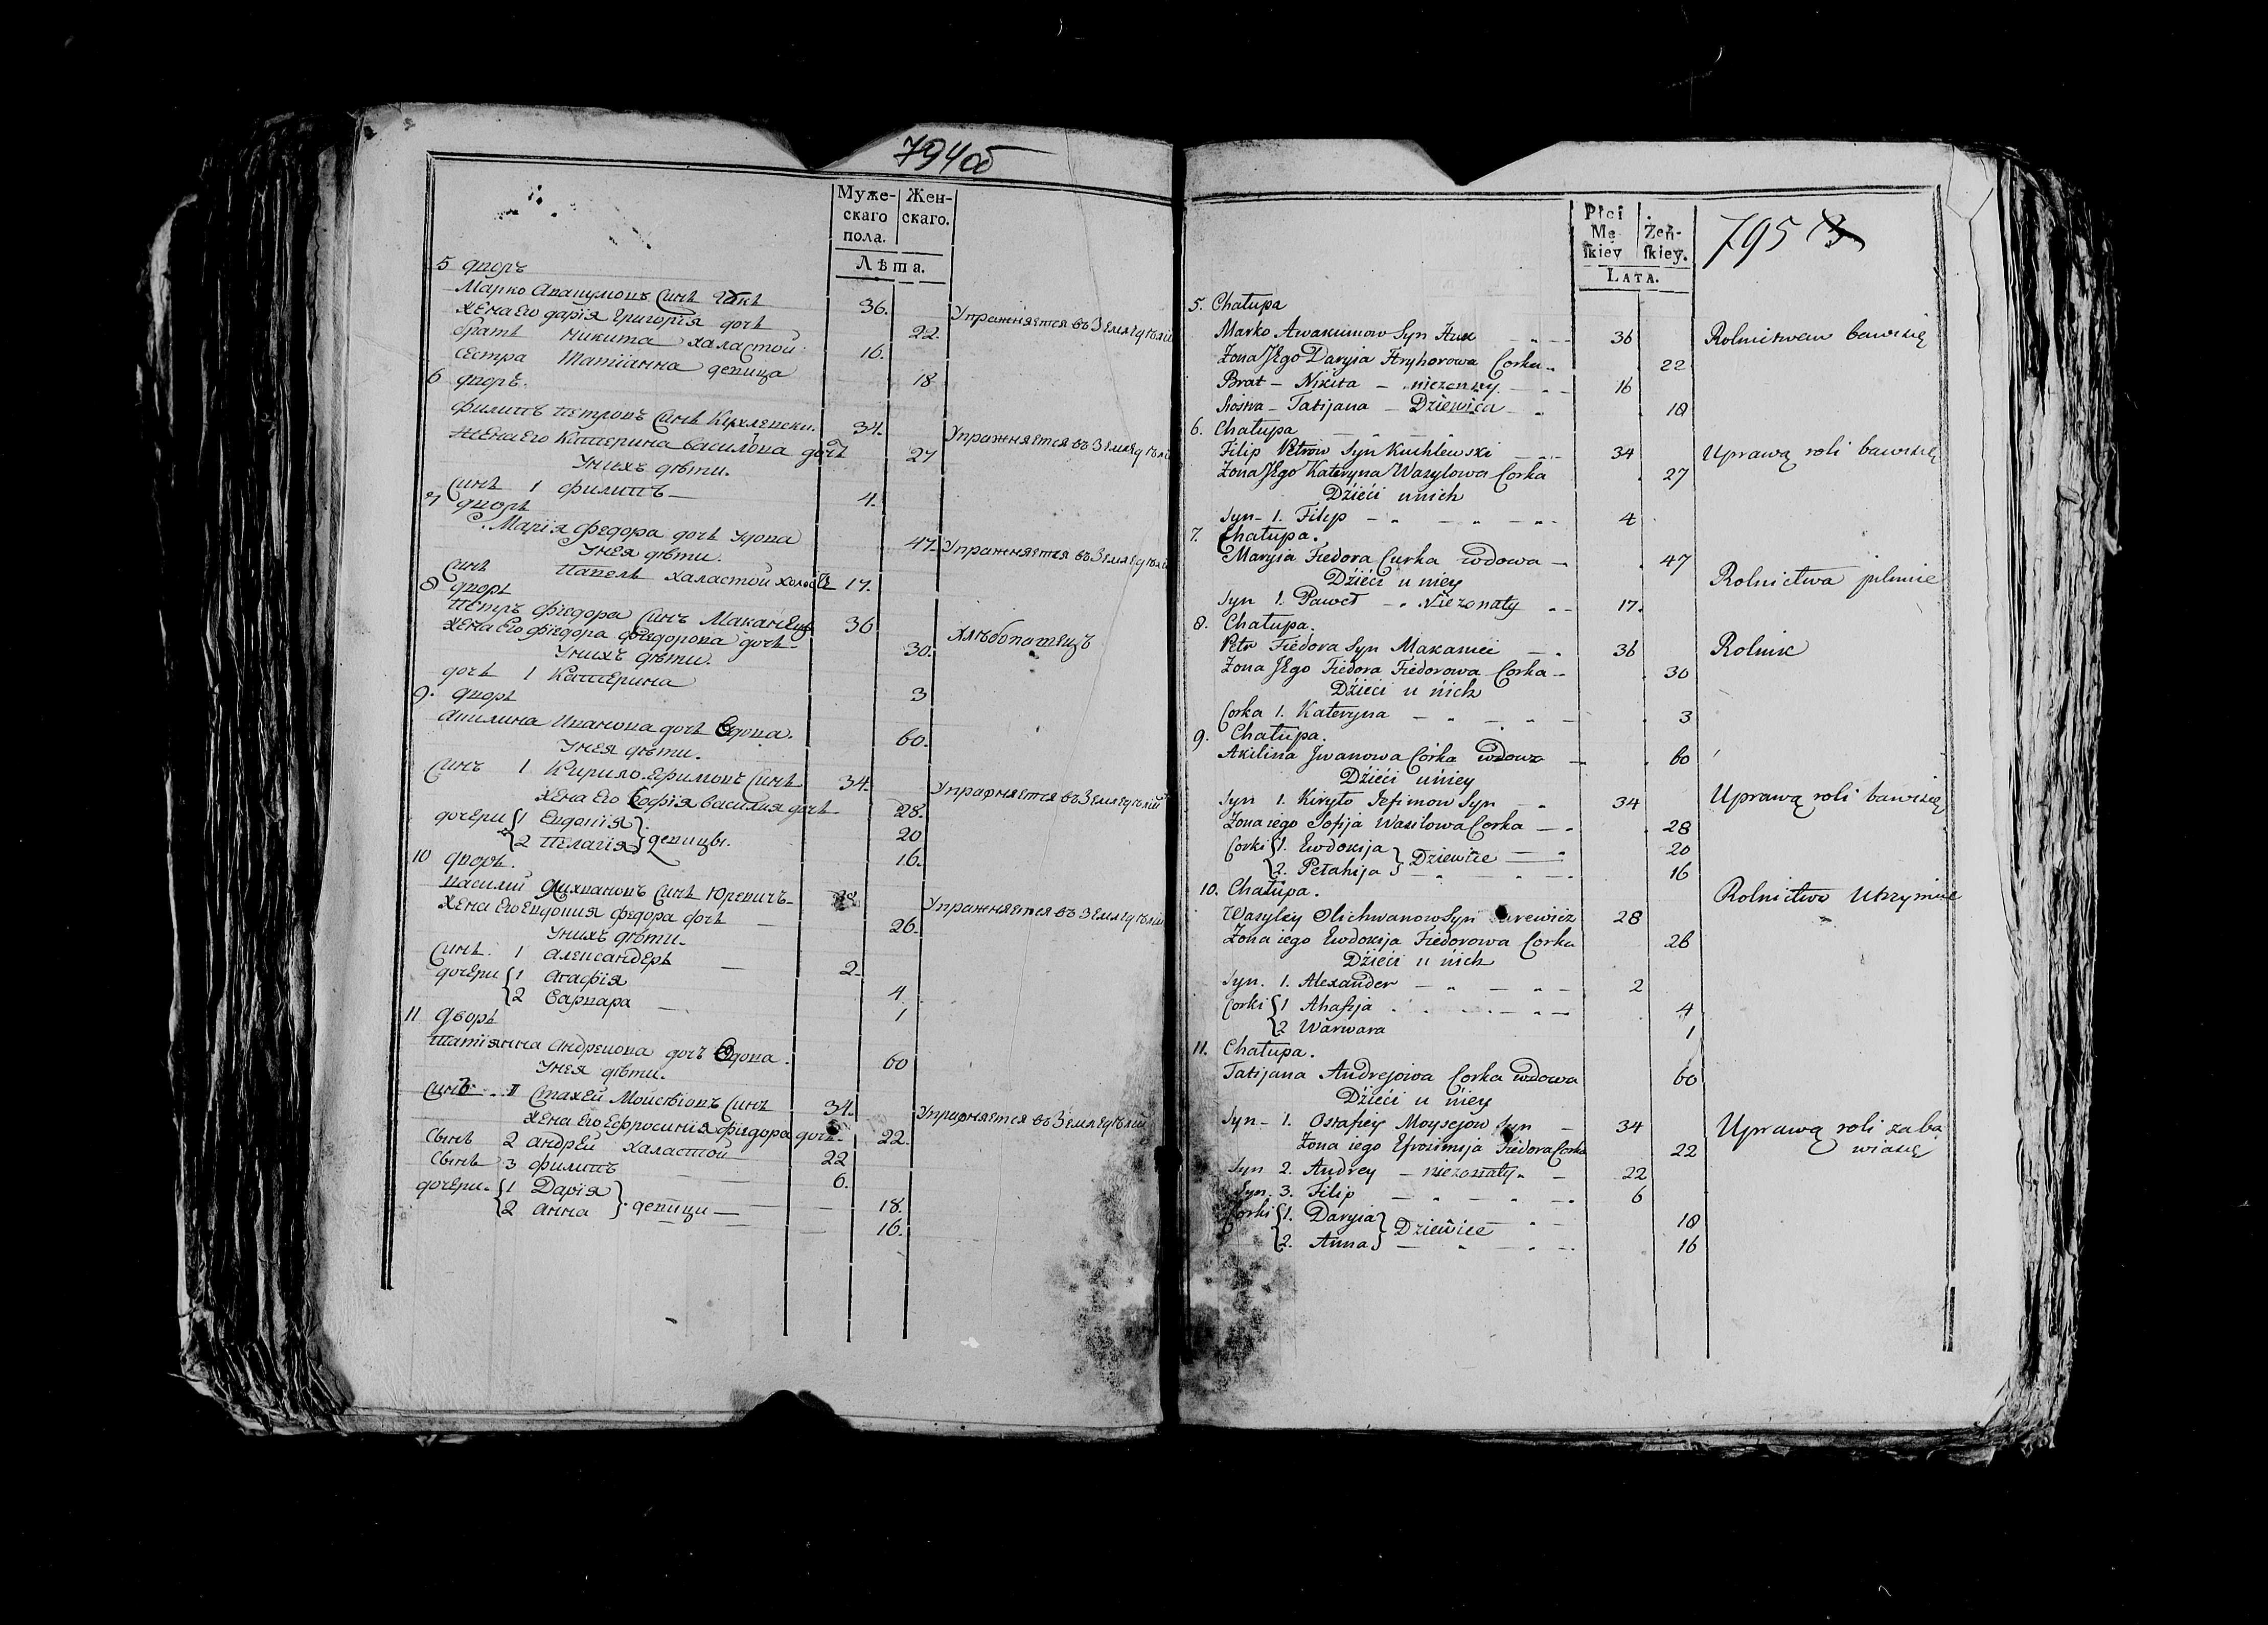 794об
Муже- Жен-
скаго скаго.
пола.
Лѣта.
5 дворъ
Марко Авакумовъ Синъ
Жена Его дарія Григорія дочь 36. Упражняется въ Земледѣлій
братъ никита халастой 22.
сестра татіанна девица 16.
6 дворъ. 18
Филипъ петровъ Синъ 34. Упражняется въ Земледѣлій
Жена Его Катерина василова дочъ 27
Унихъ дѣти.
Синъ 1 филипъ 4.
7 дворъ
Марія федора дочь удова 47. Упражняется въ Земледѣлій
Унея дѣти.
Синъ павелъ халастой 17.
8 дворъ
петръ федора Синъ Маканец 36 хлѣбопашецъ
Жена Его федора федорова дочь 30.
Унихъ дѣти.
дочь 1 Катерина 3
9. дворъ
Акилина Иванова дочь вдова. 60.
Унея дѣти.
Синъ 1 Кирило Ефимовъ Синъ 34. Упражняется въ Земледѣлій
Жена Его Софія василия дочь 28.
дочери 1 Евдокія девицы. 20
2 Пелагія 16.
10 дворъ.
василий Синъ Юревичъ 28 Упражняется въ Земледѣлій
Жена Его Евдокия федора дочь 26.
Унихъ дѣти.
Синъ. 1 Александеръ 2
дочери 1 Агафія 4
2 Варвара 1
11 дворъ
татіянна Андреиова дочъ вдова. 60
Унея дѣти.
Синъ Стахей Мойсѣіовъ Синъ 34. Упражняется въ Земледѣлій
Жена Его Ефросинія федора дочъ 22.
Сынъ 2 андрей халастой 22
Сынъ 3 филипъ 6.
дочери. 1 Дарія девици 18.
2 анна 16.
Płci .
Mę Żeń-
ſkiey ſkiey.
LATA.
795
5. Chałupa
Marko Awakumow Syn Huk 36 Rolnictwem bawi się
Żona Jego Darysa Hryhorowa Corka 22
Brat - Nikita - niezonny 16
Siostra - Tatijana - Dziewica 18
6. Chałupa
Filip Petrow Syn Kuchlewski 34 Uprawą roli bawi się
Żona Jego Kateryna Wasylowa Corka 27
Dzieci unich
Syn - 1. Filip 4
7. Chałupa.
Marysia Fiedora Curka wdowa 47
Dzieci u niey Rolnictwa pilnuie
Syn 1. Paweł Niezonaty 17.
8. Chałupa.
Petr Fiedora Syn Makaniec 36 Rolnik
Żona Jego Fiedora Fiedorowa Corka 30
Dzieci u nich
Corka 1. Kateryna 3
9. Chałupa.
Akilina Jwanowa Córka wdowa 60
Dzieci uniey
Syn 1. Kiryło Jefimow Syn 34 Uprawą roli bawi się
Żona iego Sofija Wasilowa Corka 28
Corki 1. Ewdokija Dziewice 20
2. Pełahija 16
10. Chałupa. Rolnictwo Utrzymuie
Wasyley Olichwanow Syn Jurewicz 28
Żona iego Ewdokija Fiedorowa Corka 26
Dzieci u nich
Syn. 1. Alexander 2
Corki 1 Ahafija 4
2 Warwara 1
11. Chałupa.
Tatijana Andrejowa Corka wdowa 60
Dzieci u niey
Syn - 1. Ostafiey Moysejow Syn 34 Uprawą roli zaba
Żona iego Efrosimija Fiedora Corka 22 wiasię
Syn 2. Andrey - niezonaty 22
Syn. 3. Filip 6
Corki 1. Darysia Dziewice 18
2. Anna 16